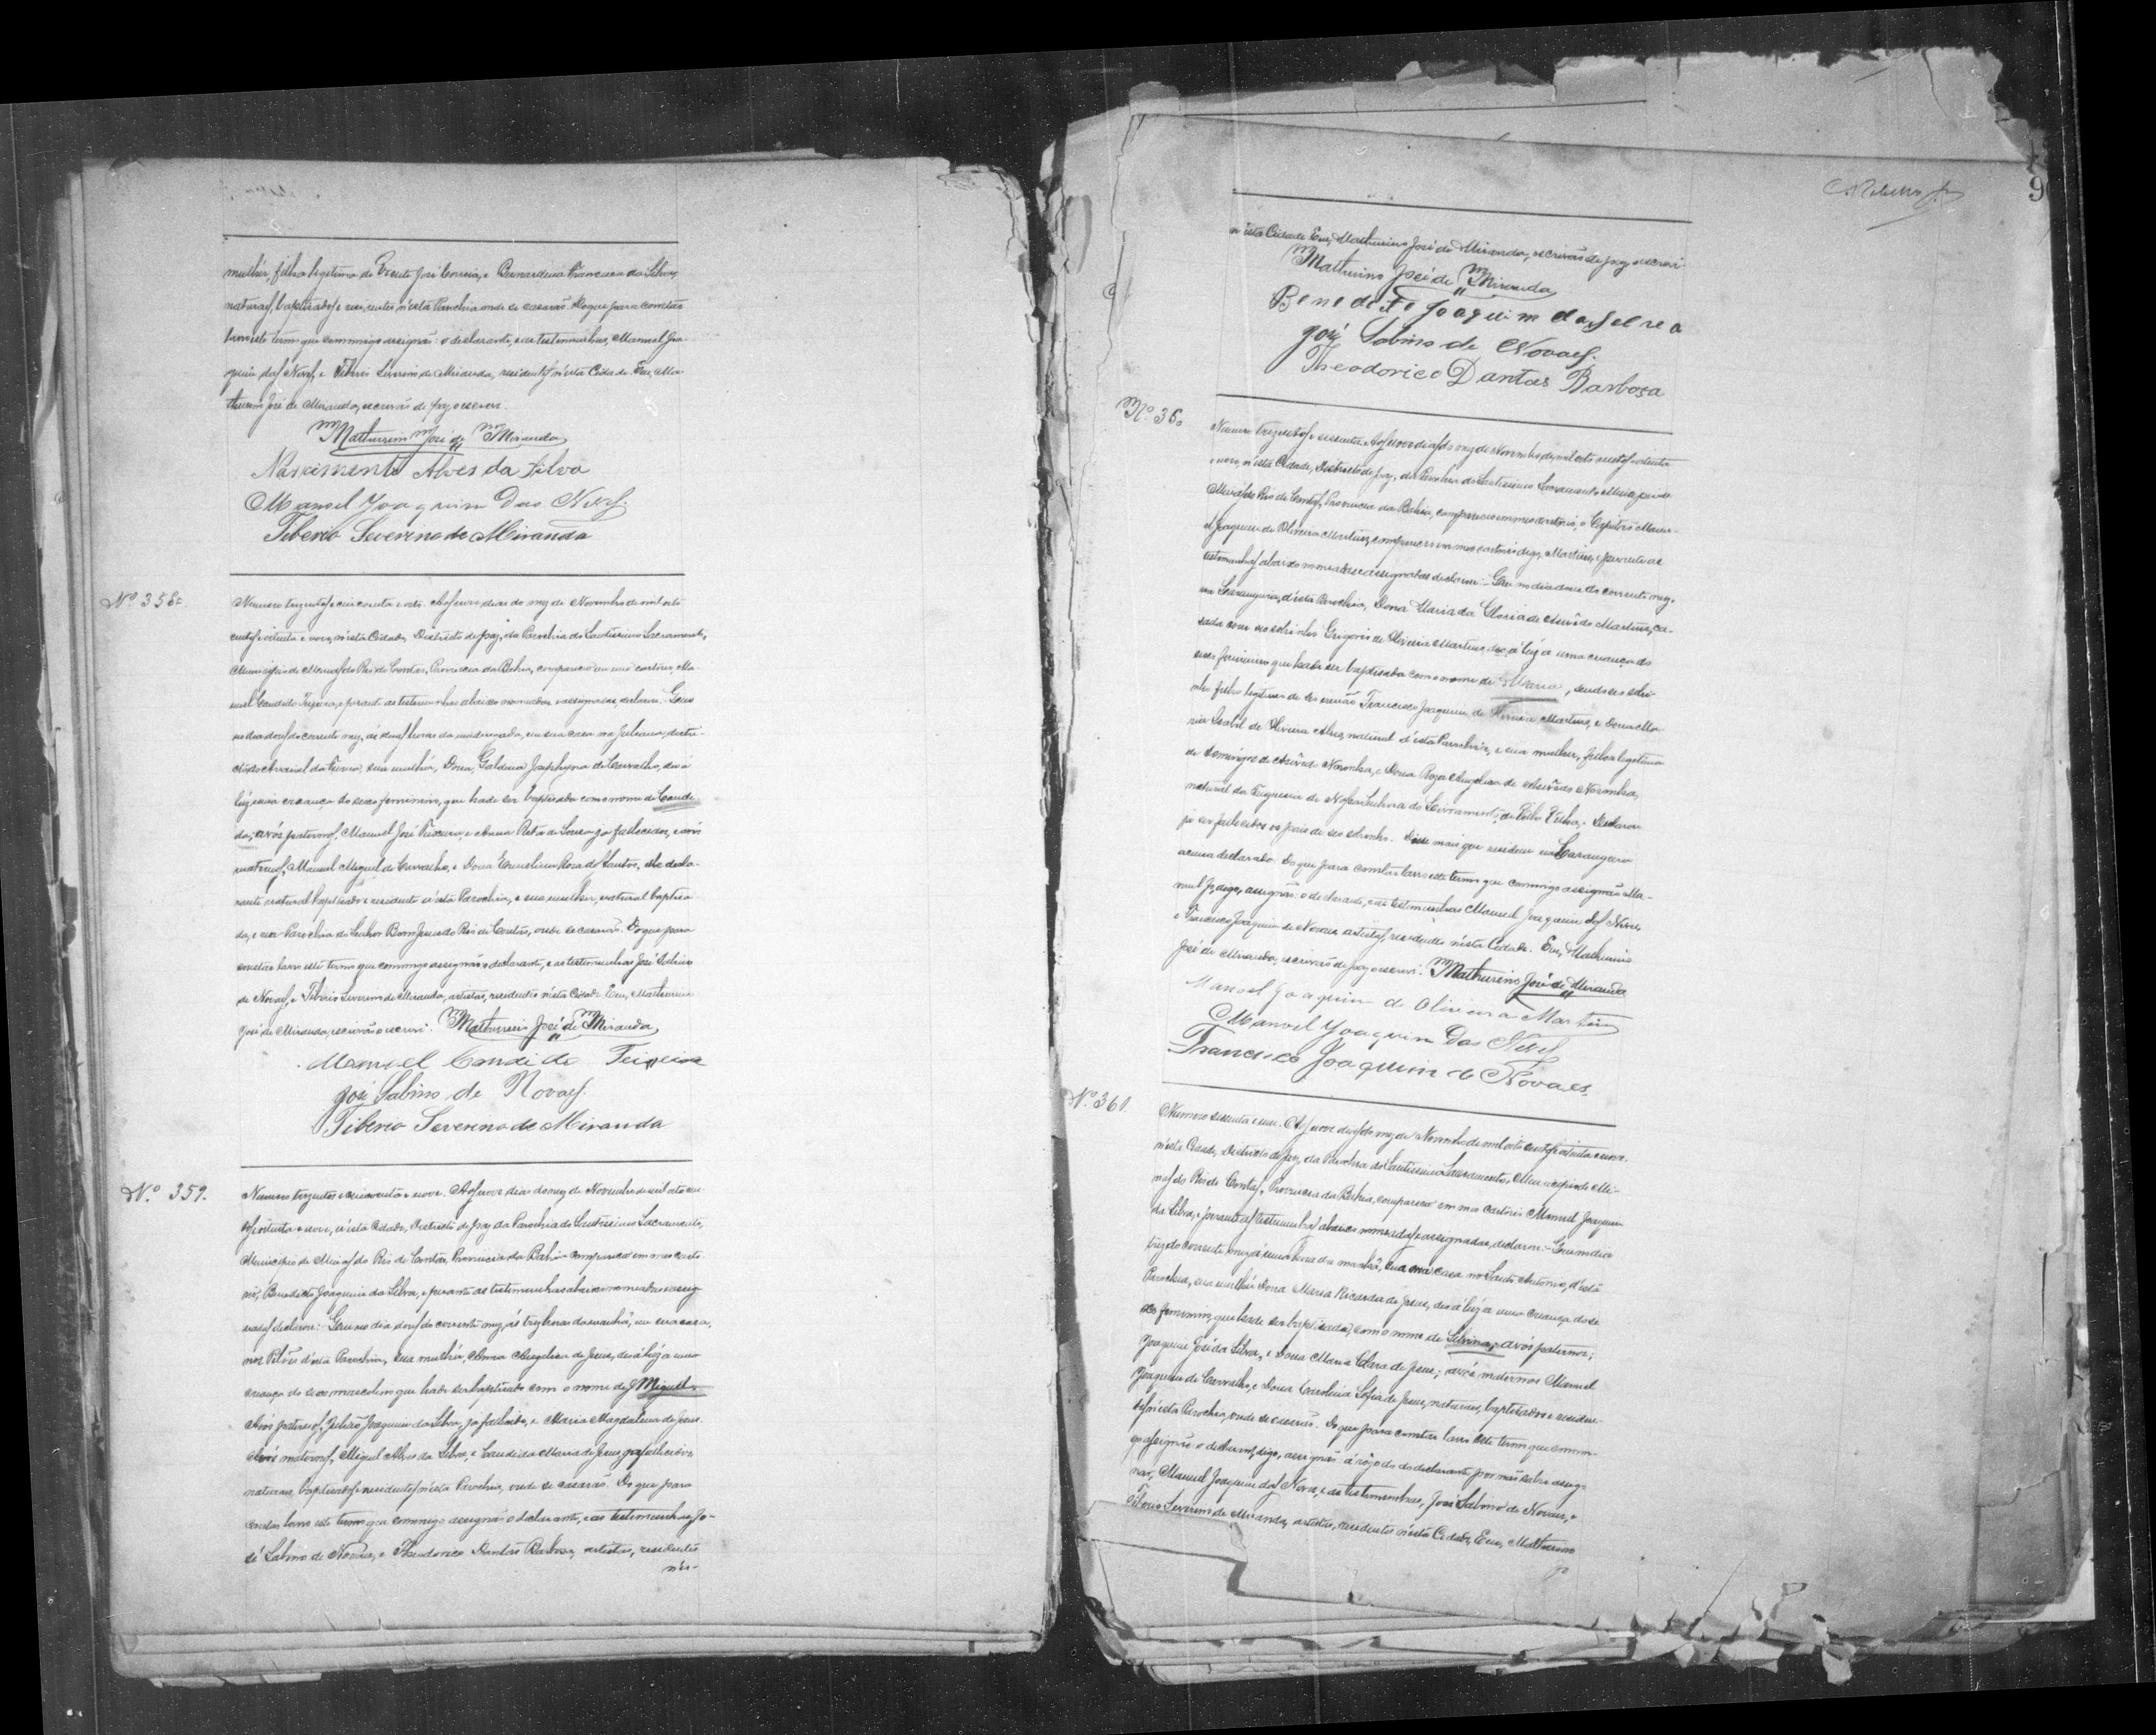 mulhér, filha legitima de Vicente José Correia, e Bernardina Francisca da Silva,
naturaes, baptisados e residentes n'esta Parochia onde se casarão. Do que para constar
lavro este termo que commigo assignão o declarante, e as testemunhas, Manoel Joa-
quim das Neves, e Tiberio Severino de Miranda, residentes n'esta Cidade. Eu, Ma-
thurino José de Miranda, escrivão de paz o escrevi.
Mathurino José de Miranda
Nascimento Alves da Silva
Manoel Joaquim Das Neves.
Tiberio Severino de Miranda
Nº 358.
Numero trezentos e cincoenta e oito. Aos nove dias do mez de Novembro de mil oito
centos e oitenta e nove, n'esta Cidade, Districto de paz, da Parochia do Santissimo Sacramento,
Municipio de Minas do Rio de Contas, Provincia da Bahia, compareceu em meu cartorio, Ma-
noel Candido Teixeira, e perante as testemunhas abaixo nomeadas e assignadas, declarou: Que
no dia dous do corrente mez, ás duas horas da madrugada, em sua casa na Juliana, distri-
cto do Arraial da Furna, sua mulhér, Dona, Galdina Josephyna de Carvalho, deu á
luz uma creança do sexo feminino, que hade ser baptisada com o nome de Candi-
da; avós paternos, Manoel José Teixeira, e Anna Rita de Souza já fallecidos, e avós
maternos, Manoel Miguel de Carvalho, e Dona Rosa de Santos, elle decla-
rante natural baptisado e residente n'esta Parochia, e sua mulher, natural baptisa-
da, e na Parochia do Senhor Bom Jesus do Rio de Contas, onde se casarão. Do que para
constar lavro este termo que commigo assignão o declarante, e as testemunhas José Sabino
de Novaes, e Tiberio Severino de Miranda, artistas, residentes n'esta Cidade. Eu, Mathurino
José de Miranda, escrivão o escrevi. Mathurino José de Miranda
Manuel Candido Teixeira
José Sabino de Novaes.
Tiberio Severino de Miranda
Nº 359.
Numero trezentos e cincoenta e nove. Aos nove dias do mez de Novembro de mil oito cen-
tos e oitenta e nove, n'esta Cidade, Districto de paz da Parochia do Santissimo Sacramento,
Municipio de Minas do Rio de Contas, Provincia da Bahia compareceu em meu carto-
rio, Benedicto Joaquim da Silva, e perante as testemunhas abaixo nomeadas e assig-
nadas declarou: Que no dia dous do corrente mez, ás trez horas da manhã, em sua casa,
nos Pilões d'esta Parochia, sua mulhér, Anna Angelica de Jesus, deu á luz a uma
creança do sexo masculino que hade ser baptisado com o nome de Miguel.
Avós paternos, Julião Joaquim da Silva, já fallecido, e Maria Magdalena de Jesus.
Avós maternos, Miguel Alves da Silva, e Candida Maria de Jesus, já fallecidos,
naturaes, baptisados e residentes n'esta Parochia, onde se casarão. Do que para
constar lavro este termo que commigo assignão o declarante, e as testemunhas, Jo-
sé Sabino de Novaes, e Theodorico Dantas Barbosa, artistas, residentes
n'es-
9
n'esta Cidade. Eu, Mathurino José de Miranda, escrivão de paz o escrevi.
Mathurino José de Miranda
Benedito Joaquim da Selvea
José Sabino de Novaes.
Theodorico Dantas Barbosa
Nº 360
Numero trezentos e sessenta. Aos nove dias do mez de Novembro de mil oito centos e oitenta
e nove, n'esta Cidade, Districto de paz, da Parochia do Santissimo Sacramento Municipio de
Minas do Rio de Contas, Provincia da Bahia, compareceu em meu cartorio, o Capitão Mano-
el Joaquim de Oliveira Martins, compareceu em meu cartorio digo, Martins, e perante as
testemunhas abaixo nomeadas e assignadas declarou: Que no dia doze do corrente mez,
na Laranjeira, d'esta Parochia, Dona Maria da Gloria de Asevêdo Martins, ca-
sada com seo sobrinho Gregorio de Oliveira Martins, deu á luz a uma creança do
sexo feminino que hade ser baptisada com o nome de Maria, sendo seo sobri-
nho filho legitimo de seo irmão Francisco Joaquim de Oliveira Martins, e Dona Ma-
ria Isabel de Oliveira Alves, natural d'esta Parochia, e sua mulher, filha legitima
de Domingos de Asevêdo Noronha, e Dona Roza Angelica de Asevêdo Noronha,
natural da Freguesia de Nossa Senhora do Livramento, da Villa Velha. Declarou
já ser fallecidos os pais de seo sobrinho. Disse mais que residem na Laranjeira
acima declarado. Do que para constar lavro este termo que commigo assignão Ma-
nuel J, digo, assignão: o declarante, e as testemunhas Manoel Joaquim das Neves,
e Francisco Joaquim de Novaes artistas, residentes n'esta Cidade. Eu, Mathurino
José de Miranda, escrivão de paz o escrevi. Mathurino José de Miranda
Manoel Joaquim de Oliveira Martins
Manoel Joaquim Das Neves
Francisco Joaquim de Novaes.
Nº 361.
Numero sessenta e um. Aos nove dias do mez de Novembro de mil oito centos e oitenta e nove.
n'esta Cidade, Districto de paz, da Parochia do Santissimo Sacramento, Municipio de Mi-
nas do Rio de Contas, Provincia da Bahia, compareceu em meu cartorio Manoel Joaquim
da Silva, e perante as testemunhas abaixo nomeadas e assignadas, declarou: Que no dia
trez do corrente mez á uma hora da manhã, em sua casa no Santo Antonio, d'esta
Parochia, sua mulhér Dona Maria Ricarda de Jesus, deu á luz a uma creança do se-
xo feminino, que hade ser baptisada, com o nome de Silvina, avós paternos;
Joaquim José da Silva, e Dona Maria Clara de Jesus; avós maternos Manoel
Joaquim de Carvalho, e Dona Carolina Sofia de Jesus, naturaes, baptisados e residen-
tes n'esta Parochia, onde se casarão. Do que para constar lavro este termo que commi-
go assignão o declarant, digo, assignão á rogo do do declarante por não saber assig-
nar, Manoel Joaquim das Neves, e as testemunhas, José Sabino de Novaes, e
Tiberio Severino de Miranda, artistas, residentes n'esta Cidade, Eu, Mathurino